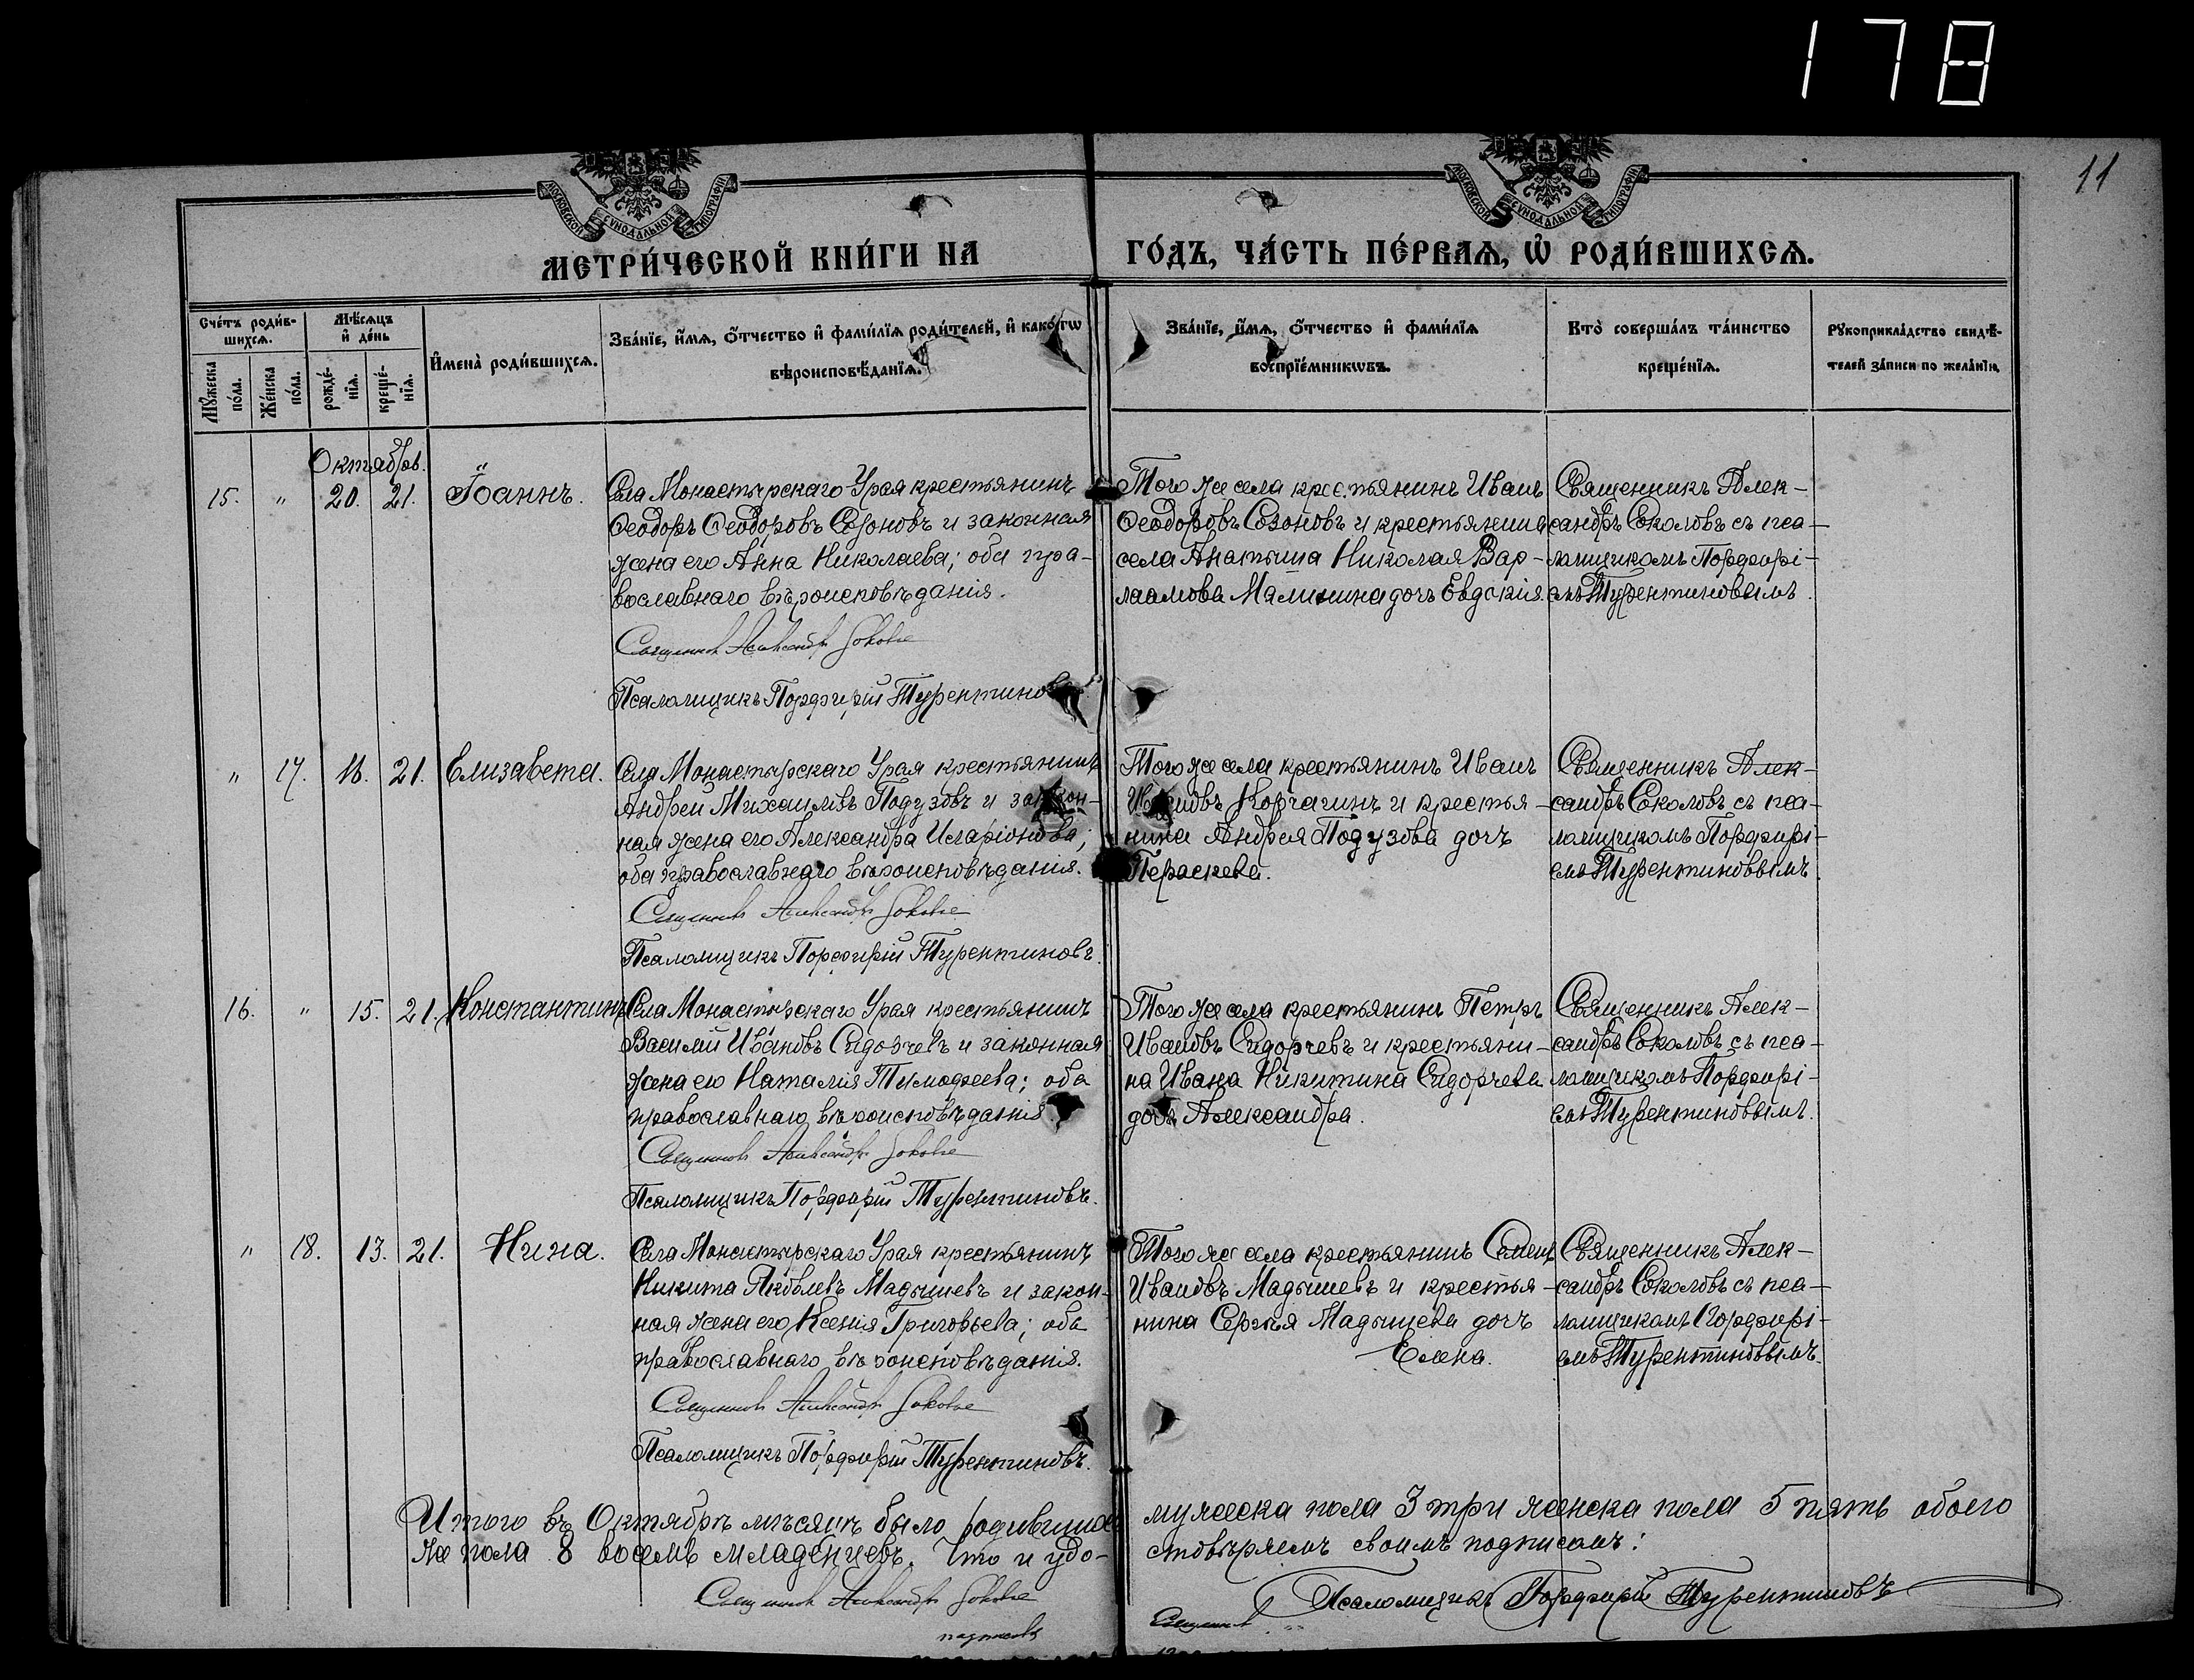 178
11
МОСКОВСКОЙ СѴНОДАЛЬНОЙ ТИПОГРАФІИ
МОСКОВСКОЙ СѴНОДАЛЬНОЙ ТИПОГРАФІИ
МЕТРИ́ЧЕСКОЙ КНИ́ГИ НА ГО́ДЪ, ЧА́СТЬ ПЕ́РВАѦ, Ѡ҆ РОДИ́ВШИХСѦ.
Сче́тъ роди́в-
шихсѧ.
Мѣ́сѧцъ
и҆ де́нь
Мꙋ́жеска
по́ла.
Же́нска
по́ла.
рожде́-
нїѧ.
креще́-
нїѧ.
И҆мена̀ роди́вшихсѧ.
Зва́нїе, и҆́мѧ, ѻ҆́тчество и҆ фами́лїѧ роди́телей, и҆ како́гѡ
вѣроисповѣ́данїѧ.
Зва́нїе, и҆́мѧ, ѻ҆́тчество и҆ фами́лїѧ
воспрїе́мникѡвъ.
Кто̀ соверша́лъ та́инство
креще́нїѧ.
Рꙋкоприкла́дство свидѣ́-
телей за́писи по жела́нїю.
Октября.
15. " 20. 21. Іоаннъ.
Села Монастырскаго Урая крестьянинъ
Ѳеодоръ Ѳеодоровъ Созоновъ и законная
жена его Анна Николаева; оба пра-
вославнаго вѣроисповѣданія.
Священникъ Александръ Соколовъ
Псаломщикъ Порфирій Турентиновъ
Того же села крестьянинъ Иванъ
Ѳеодоровъ Созоновъ и крестьянина
села Анатыша Николая Вар-
лаамова Малинина дочь Евдокія.
Священникъ Алек-
сандръ Соколовъ съ пса-
ломщикомъ Порфирі-
емъ Турентиновымъ.
" 17. 16. 21. Елизавета.
Села Монастырскаго Урая крестьянинъ
Андрей Михаиловъ Подузовъ и закон-
ная жена его Александра Иларіонова;
оба православнаго вѣроисповѣданія.
Священникъ Александръ Соколовъ
Псаломщикъ Порфирій Турентиновъ.
Того же села крестьянинъ Иванъ
Ивановъ Корчагинъ и крестья-
нина Андрея Подузова дочь
Параскева.
Священникъ Алек-
сандръ Соколовъ съ пса-
ломщикомъ Порфирі-
емъ Турентиновымъ.
16. " 15. 21. Константинъ
Села Монастырскаго Урая крестьянинъ
Василій Ивановъ Сидорчевъ и законная
жена его Наталія Тимофеева; оба
православнаго вѣроисповѣданія.
Священникъ Александръ Соколовъ
Псаломщикъ Порфирій Турентиновъ.
Того же села крестьянинъ Петръ
Ивановъ Сидорчевъ и крестьяни-
на Ивана Никитина Сидорчева
дочь Александра.
Священникъ Алек-
сандръ Соколовъ съ пса-
ломщикомъ Порфирі-
емъ Турентиновымъ.
" 18. 13. 21. Нина.
Села Монастырскаго Урая крестьянинъ
Никита Яковлевъ Мадышевъ и закон-
ная жена его Ксенія Григорьева; оба
православнаго вѣроисповѣданія.
Священникъ Александръ Соколовъ
Псаломщикъ Порфирій Турентиновъ.
Того же села крестьянинъ Семенъ
Ивановъ Мадышевъ и крестья-
нина Сергѣя Мадышева дочь
Елена.
Священникъ Алек-
сандръ Соколовъ съ пса-
ломщикомъ Порфирі-
емъ Турентиновымъ.
Итого въ Октябрѣ мѣсяцѣ было родившихся мужеска пола 3 три женска пола 5 пять обоего
же пола 8 восемь младенцевъ. Что и удо-стовѣряемъ своимъ подписомъ:
Священникъ Александръ Соколовъ
Псаломщикъ Порфирій Турентиновъ
Священникъ